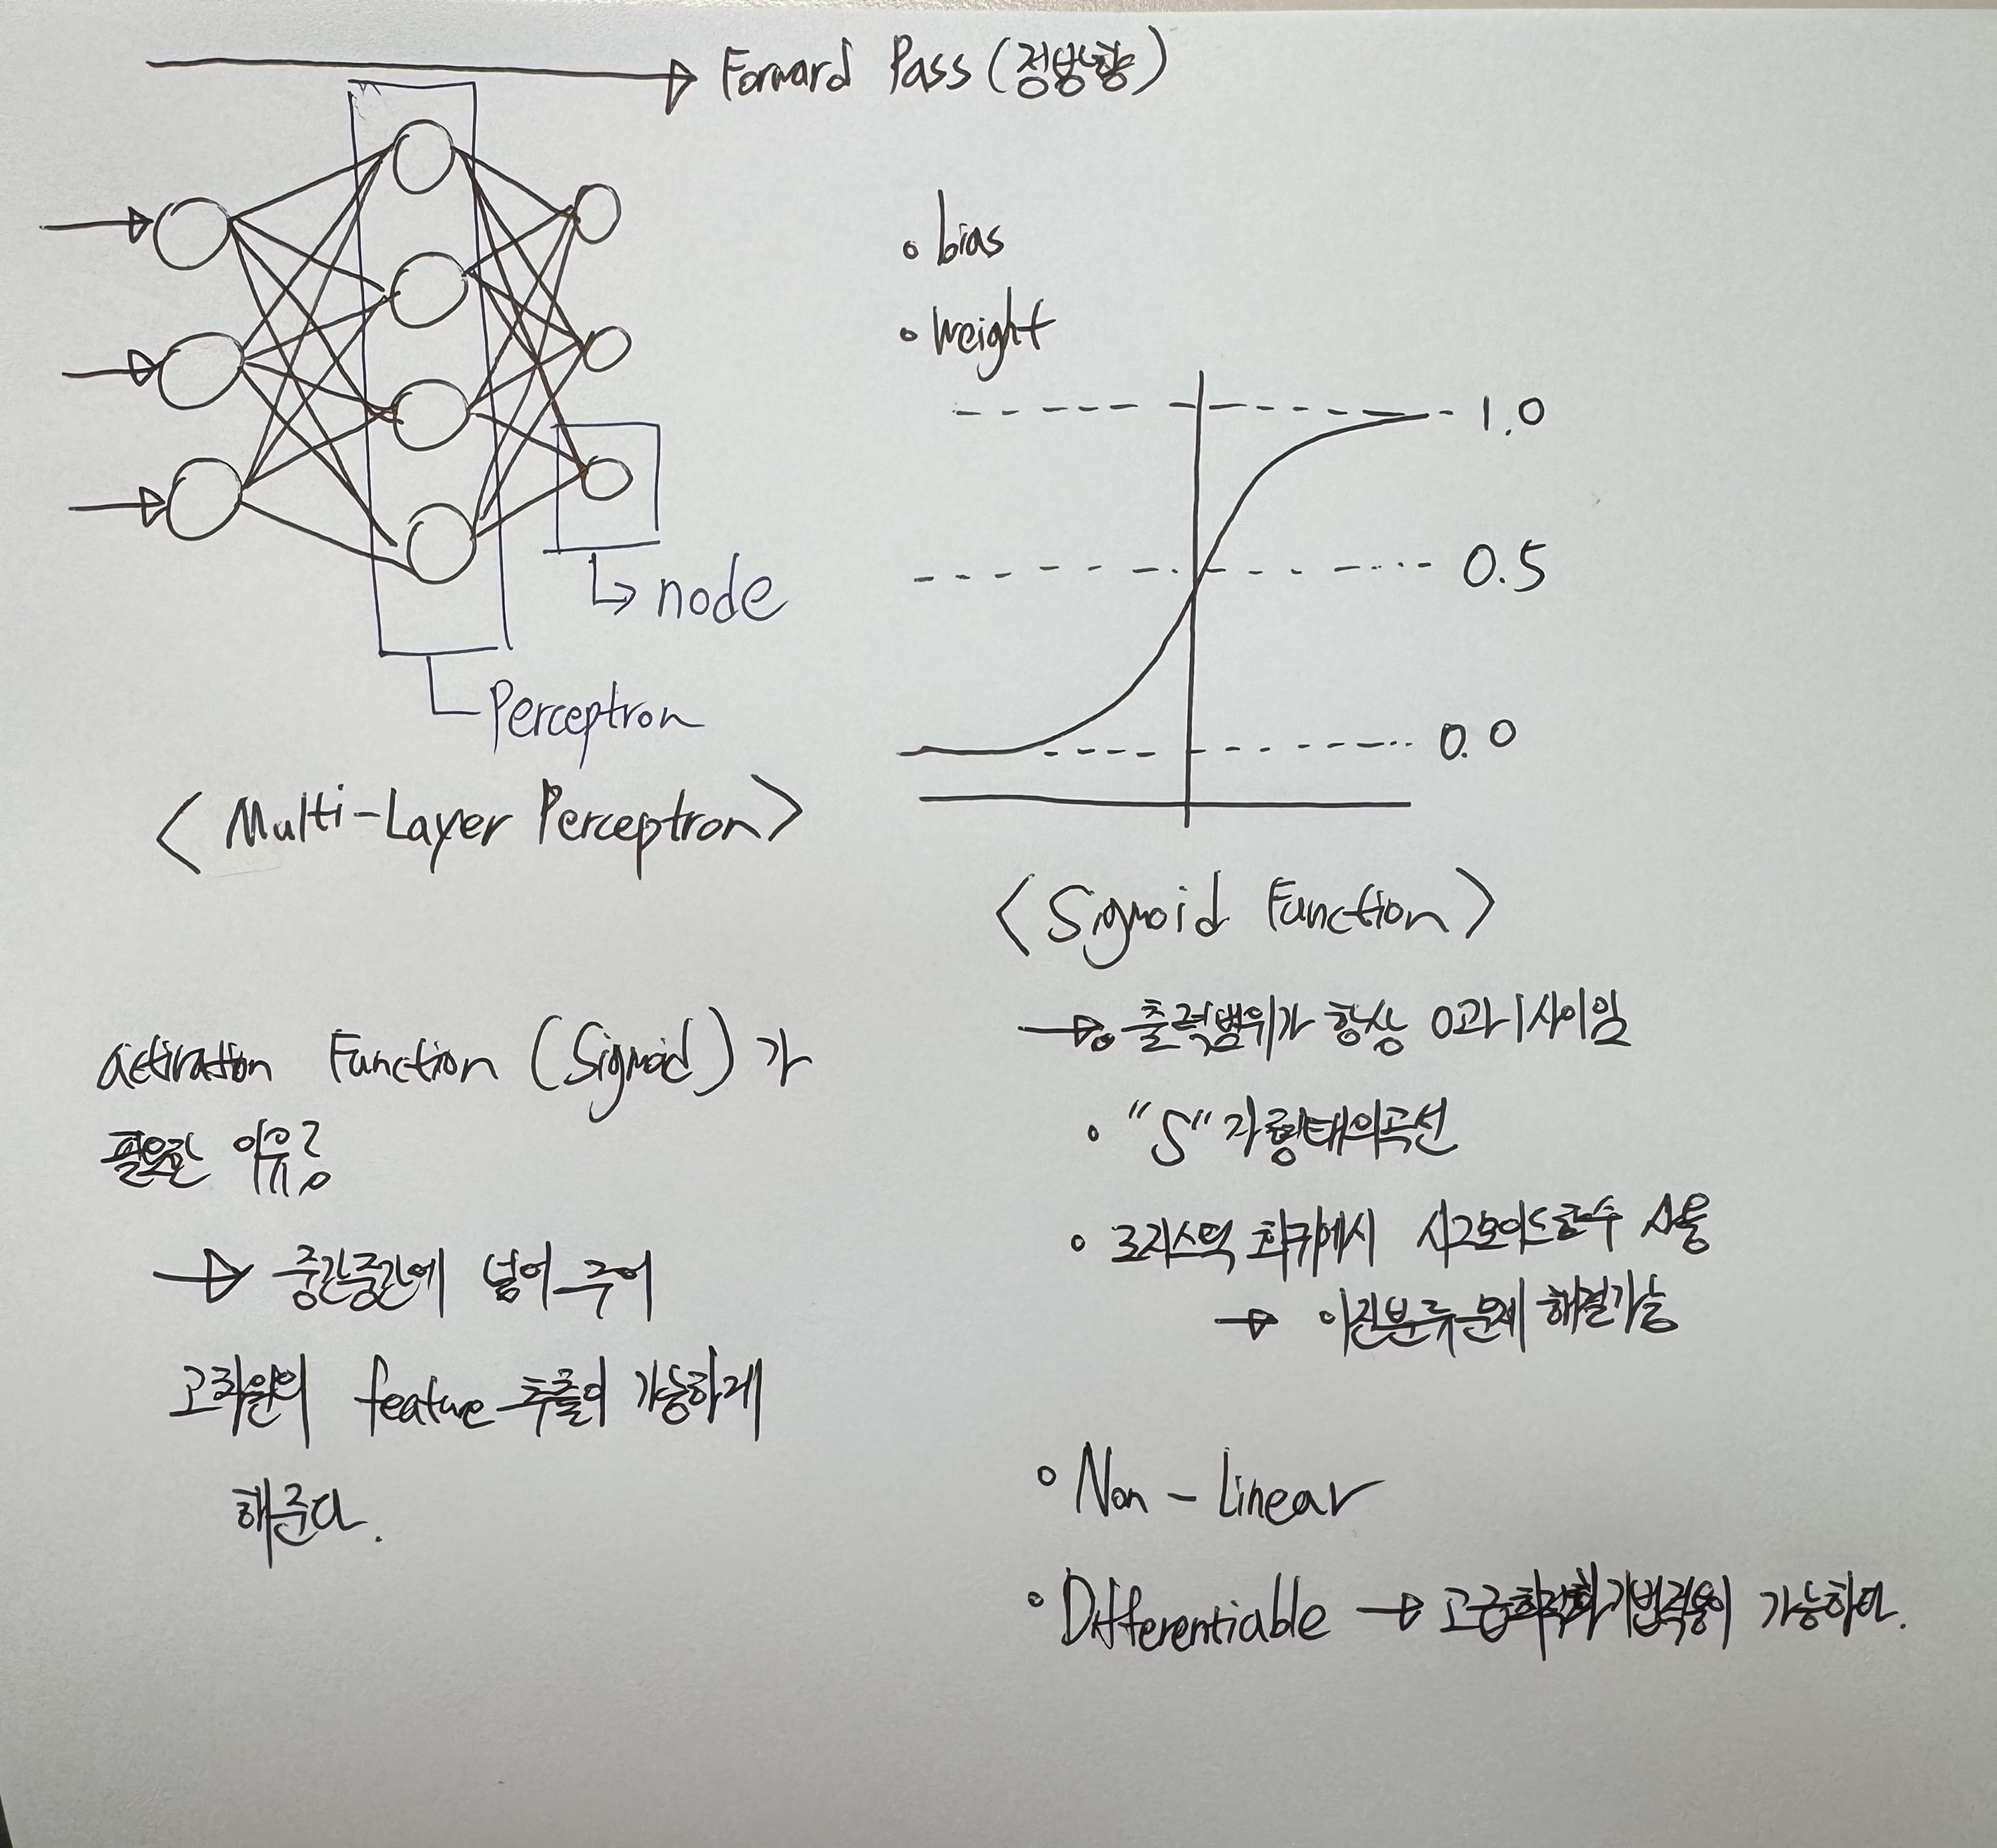 Forward Pass (정방향)
• bias
• weight
node
Perceptron
< Multi-Layer Perceptron >
1.0
0.5
0.0
< Sigmoid Function >
→ • 출력범위가 항상 0과 1사이임
• "S" 자 형태의 곡선
• 로지스틱 회귀에서 시그모이드함수 사용
→ 이진분류문제 해결가능
• Non-Linear
• Differentiable → 고급최적화기법적용이 가능하다.
activation Function (Sigmoid)가
필요한 이유?
→ 중간중간에 넣어주어
고차원의 feature 추출이 가능하게
해준다.